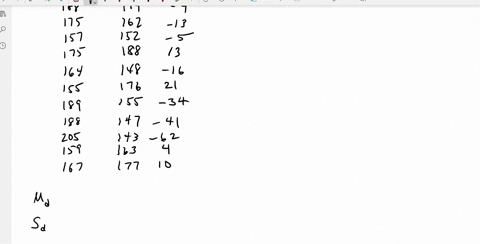 175 162 -13
157 152 -5
175 188 13
164 148 -16
155 176 21
189 155 -34
188 147 -41
205 143 -62
159 163 4
167 177 10
M_d
S_d